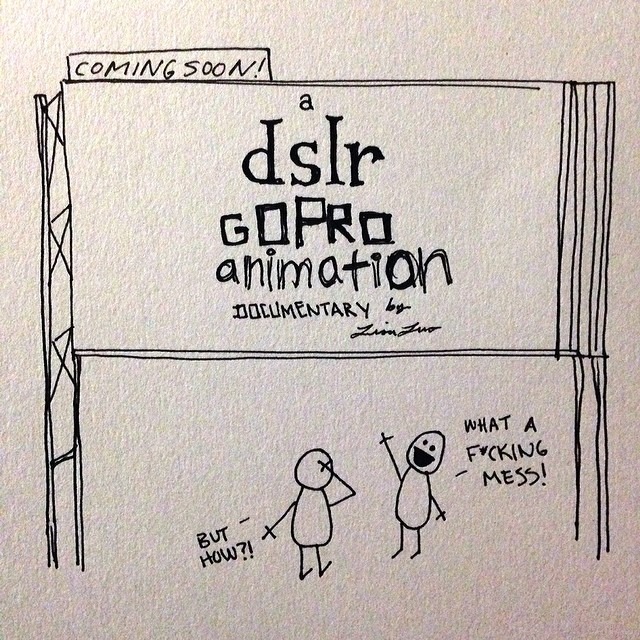 COMING SOON!
a
dslr
GOPRO
animation
DOCUMENTARY by
WHAT A
F*CKING
MESS!
BUT
HOW?!